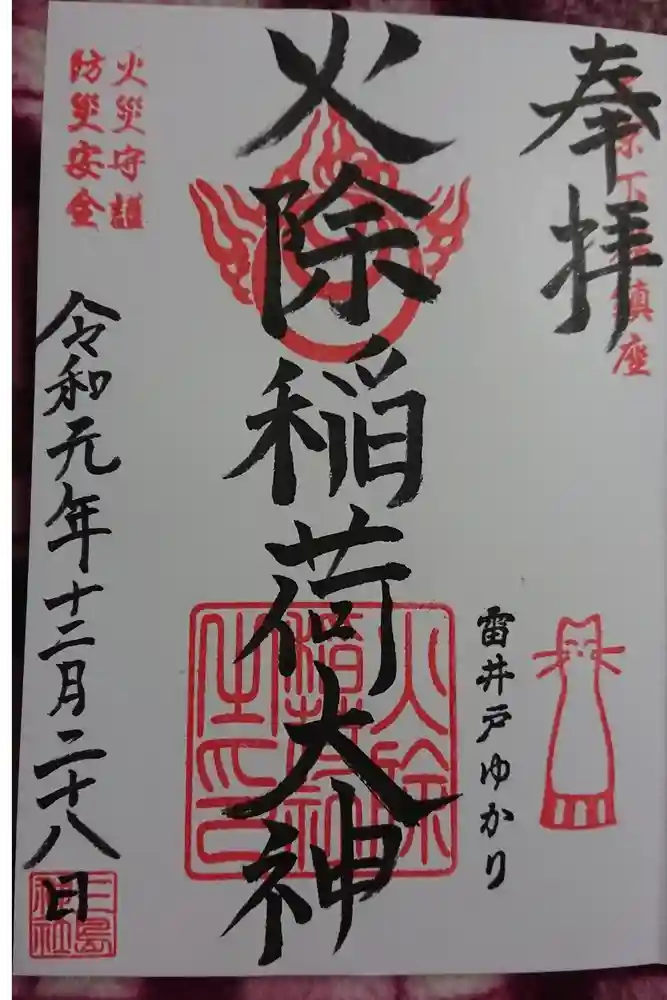 奉拝
鎮座
雷井戸ゆかり
火除稲荷大神
火災守護
防災安全
令和元年十二月二十八日
三島
神社